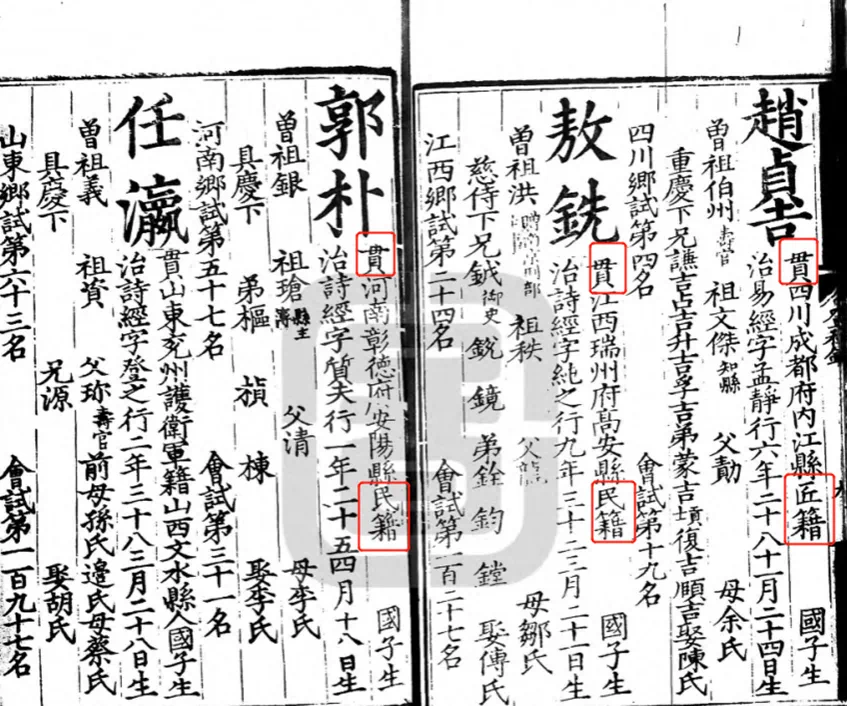 趙貞吉
貫四川成都府內江縣匠籍 國子生
治易經字孟靜行六年二十八十一月二十四日生
曾祖伯州壽官 祖文傑知縣 父勣 母余氏
重慶下兄譙吉占吉升吉孚吉弟蒙吉塤復吉頤吉娶陳氏
四川鄉試第四名 會試第十九名
敖銑
貫江西瑞州府高安縣民籍 國子生
治詩經字純之行九年三十二三月二十一日生
曾祖洪 祖秩 父 母鄒氏
慈侍下兄鉞御史 銳 鏡 弟銓 鈞 鏜 娶傅氏
江西鄉試第二十四名 會試第一百二十七名
郭朴
貫河南彰德府安陽縣民籍 國子生
治詩經字質夫行一年二十五四月十八日生
曾祖銀 祖瑲縣主簿 父清 母李氏
具慶下 弟樞 楨 棟 娶李氏
河南鄉試第五十七名 會試第三十一名
任瀛
貫山東兗州護衛軍籍山西文水縣人國子生
治詩經字登之行二年三十八三月二十八日生
曾祖義 祖 父珎壽官 前母孫氏邊氏母蔡氏
具慶下 兄源 娶胡氏
山東鄉試第六十三名 會試第一百九十七名